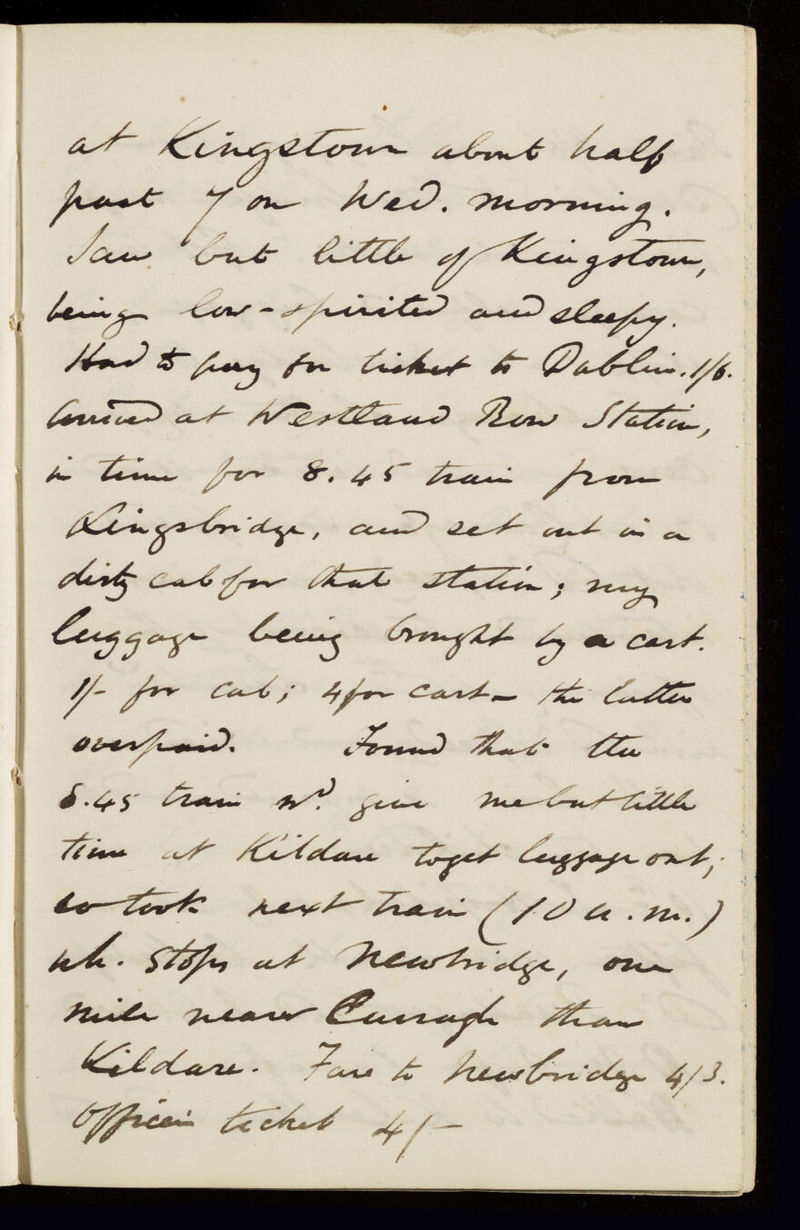 at Kingstown about half
past 7 on Wed. morning.
Saw but little of Kingstown,
being low-spirited and sleepy.
Had to pay for ticket to Dublin. 1/6.
Arrived at Westland Row Station,
in time for 8.45 train from
Kingsbridge, and set out in a
dirty cab for that station; my
luggage being brought by a cart.
1/- for cab; 4/ for cart - the latter
overpaid. Found that the
8.45 train wd. give me but little
time at Kildare to get luggage out,
so took next train (10 a.m.)
wh. stops at Newbridge, one
mile nearer Curragh than
Kildare. Fare to Newbridge 4/3.
Officers ticket 4/-